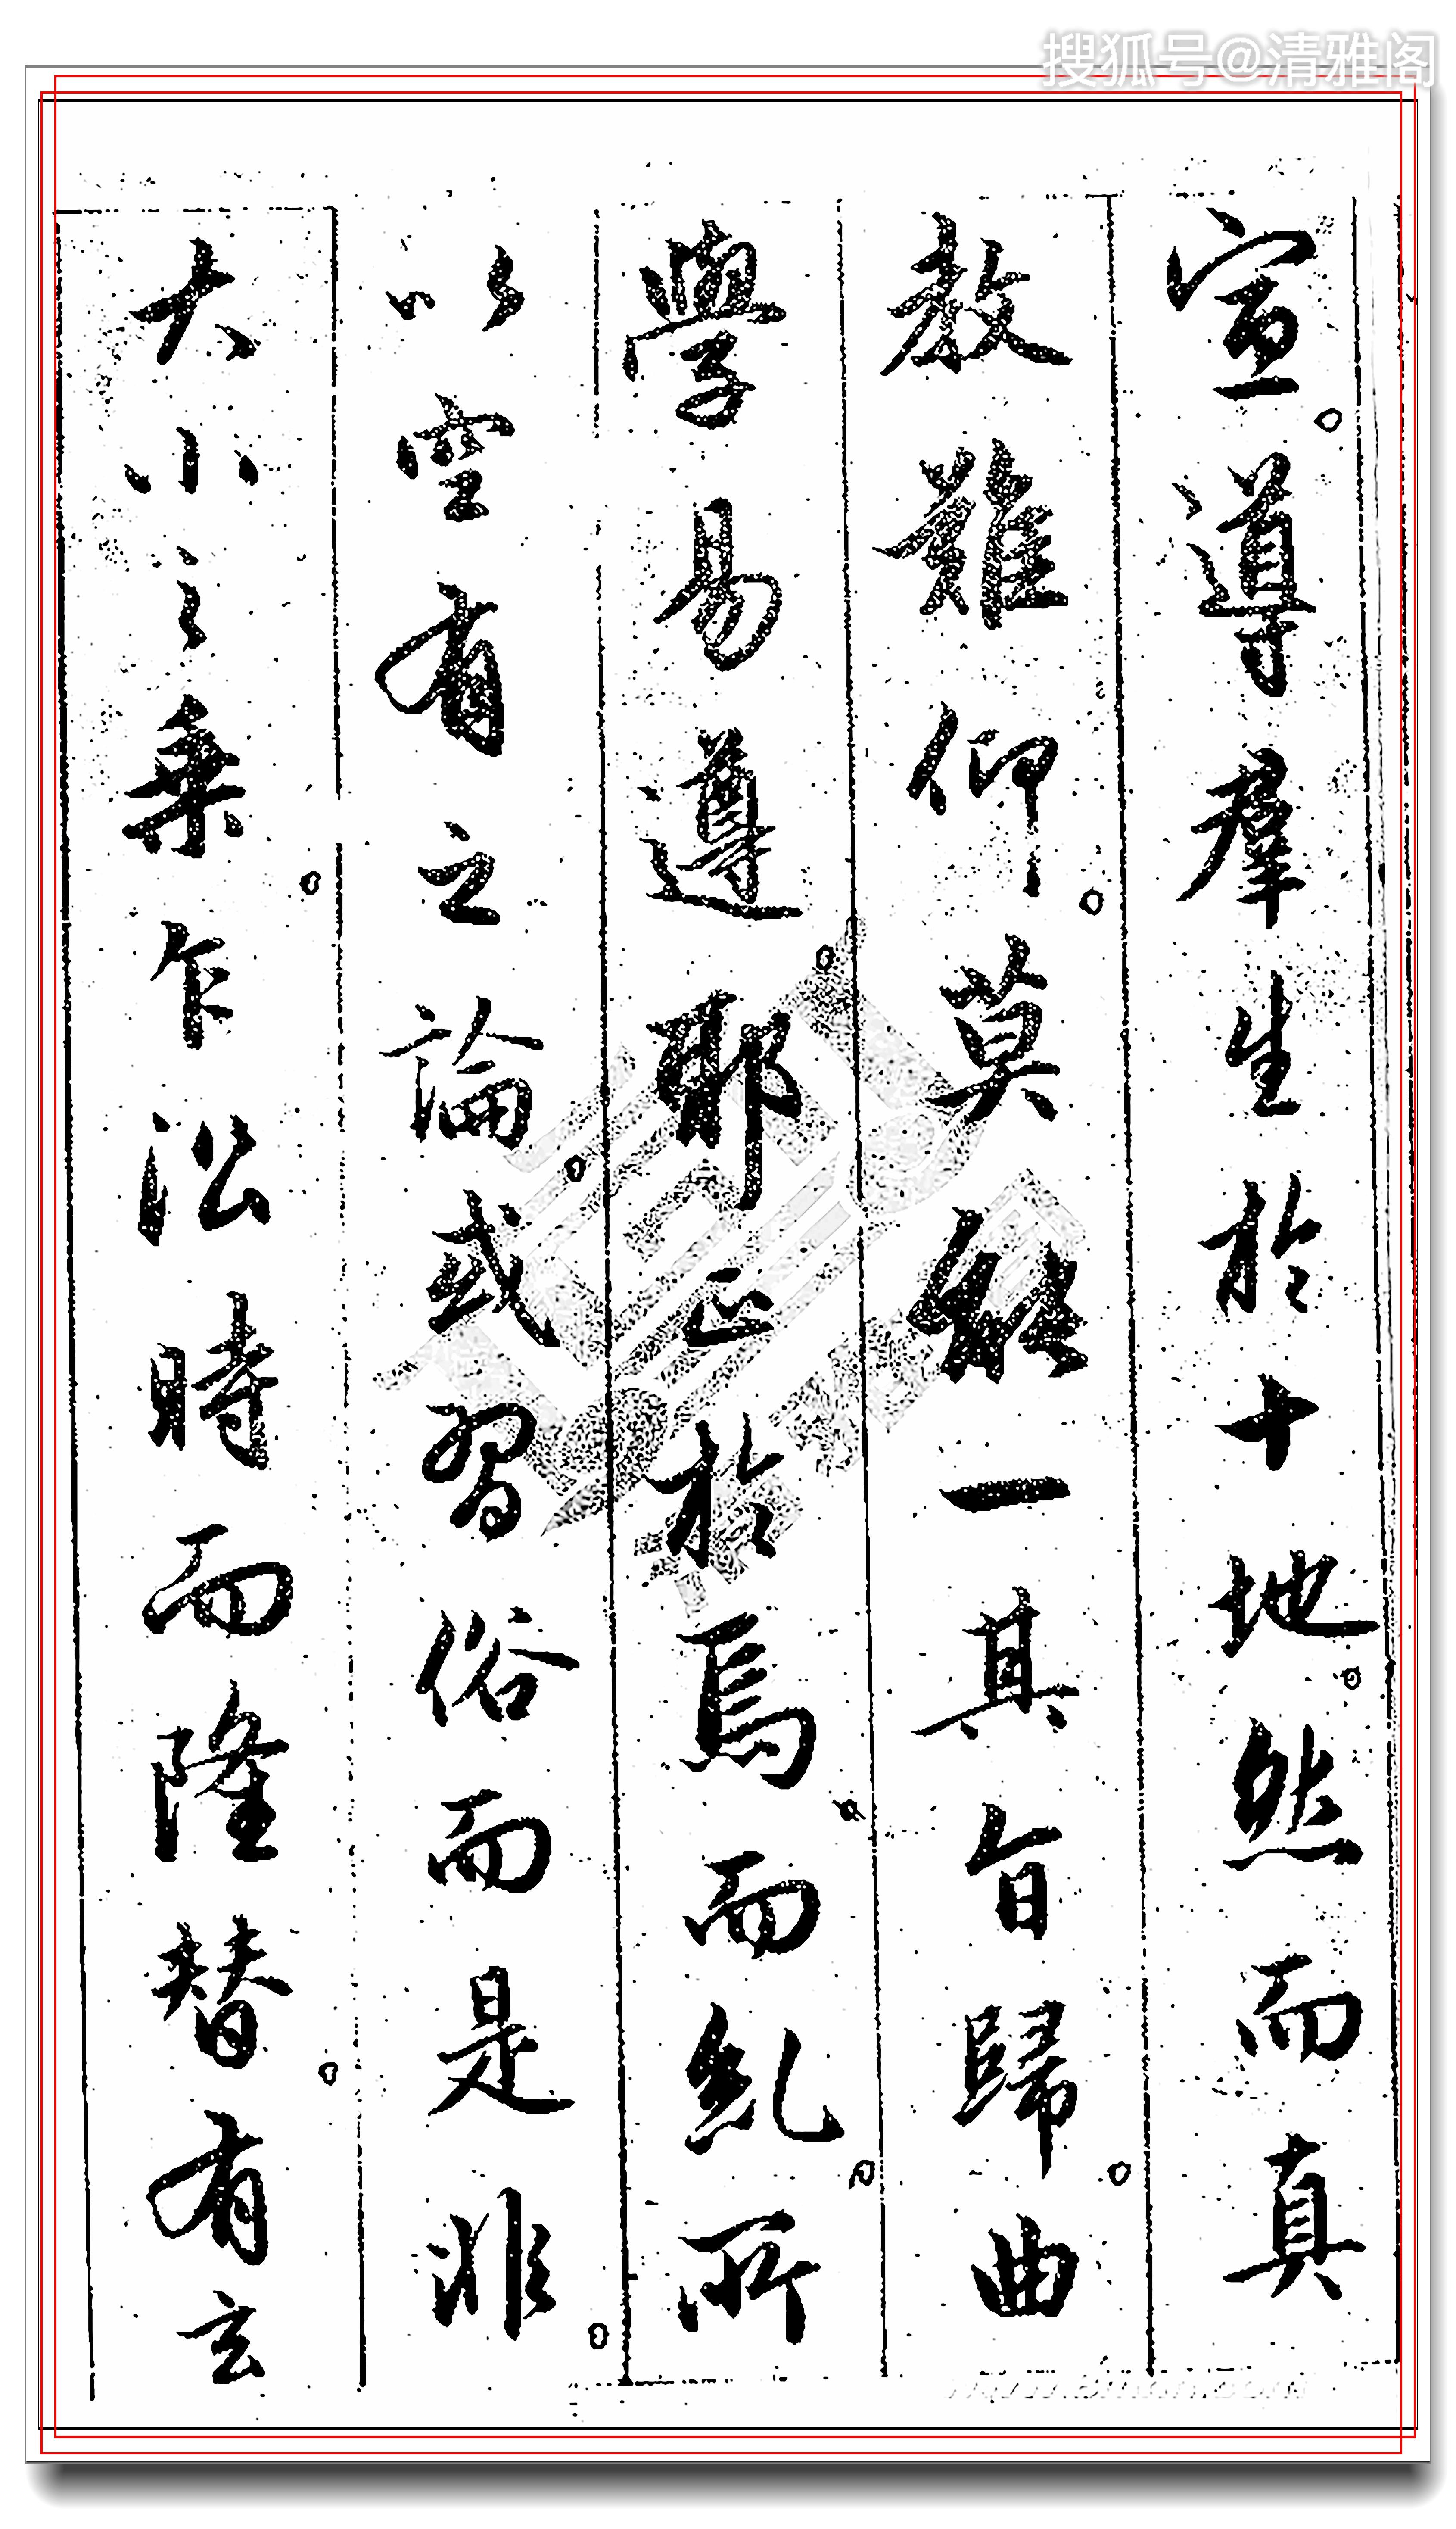 搜狐号@清雅阁
宣導羣生於十地然而真
教難仰莫能一其旨歸曲
學易遵邪正於焉而糺所
以空有之論或習俗而是非
大小之乘乍沿時而隆替有玄